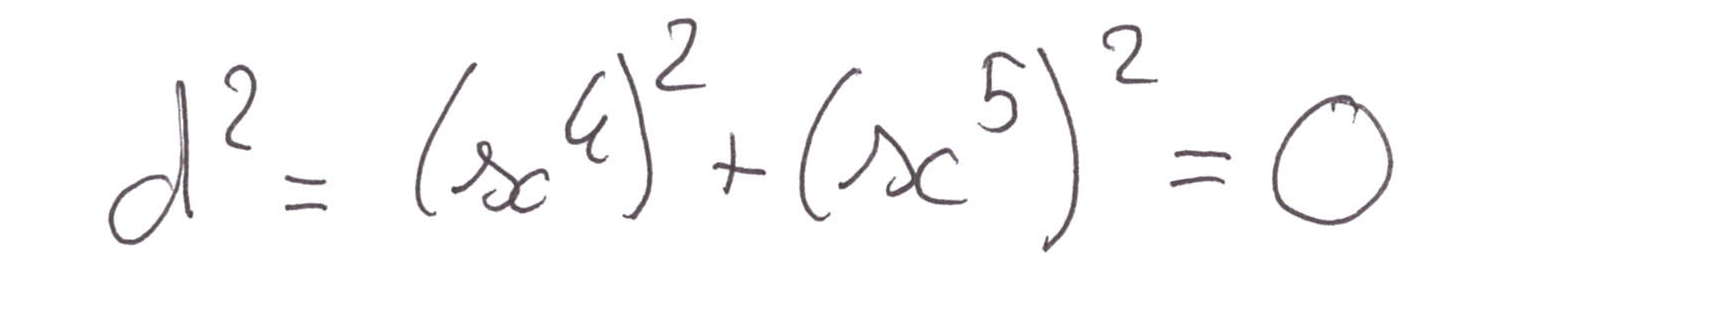 d² = (x⁴)² + (x⁵)² = 0